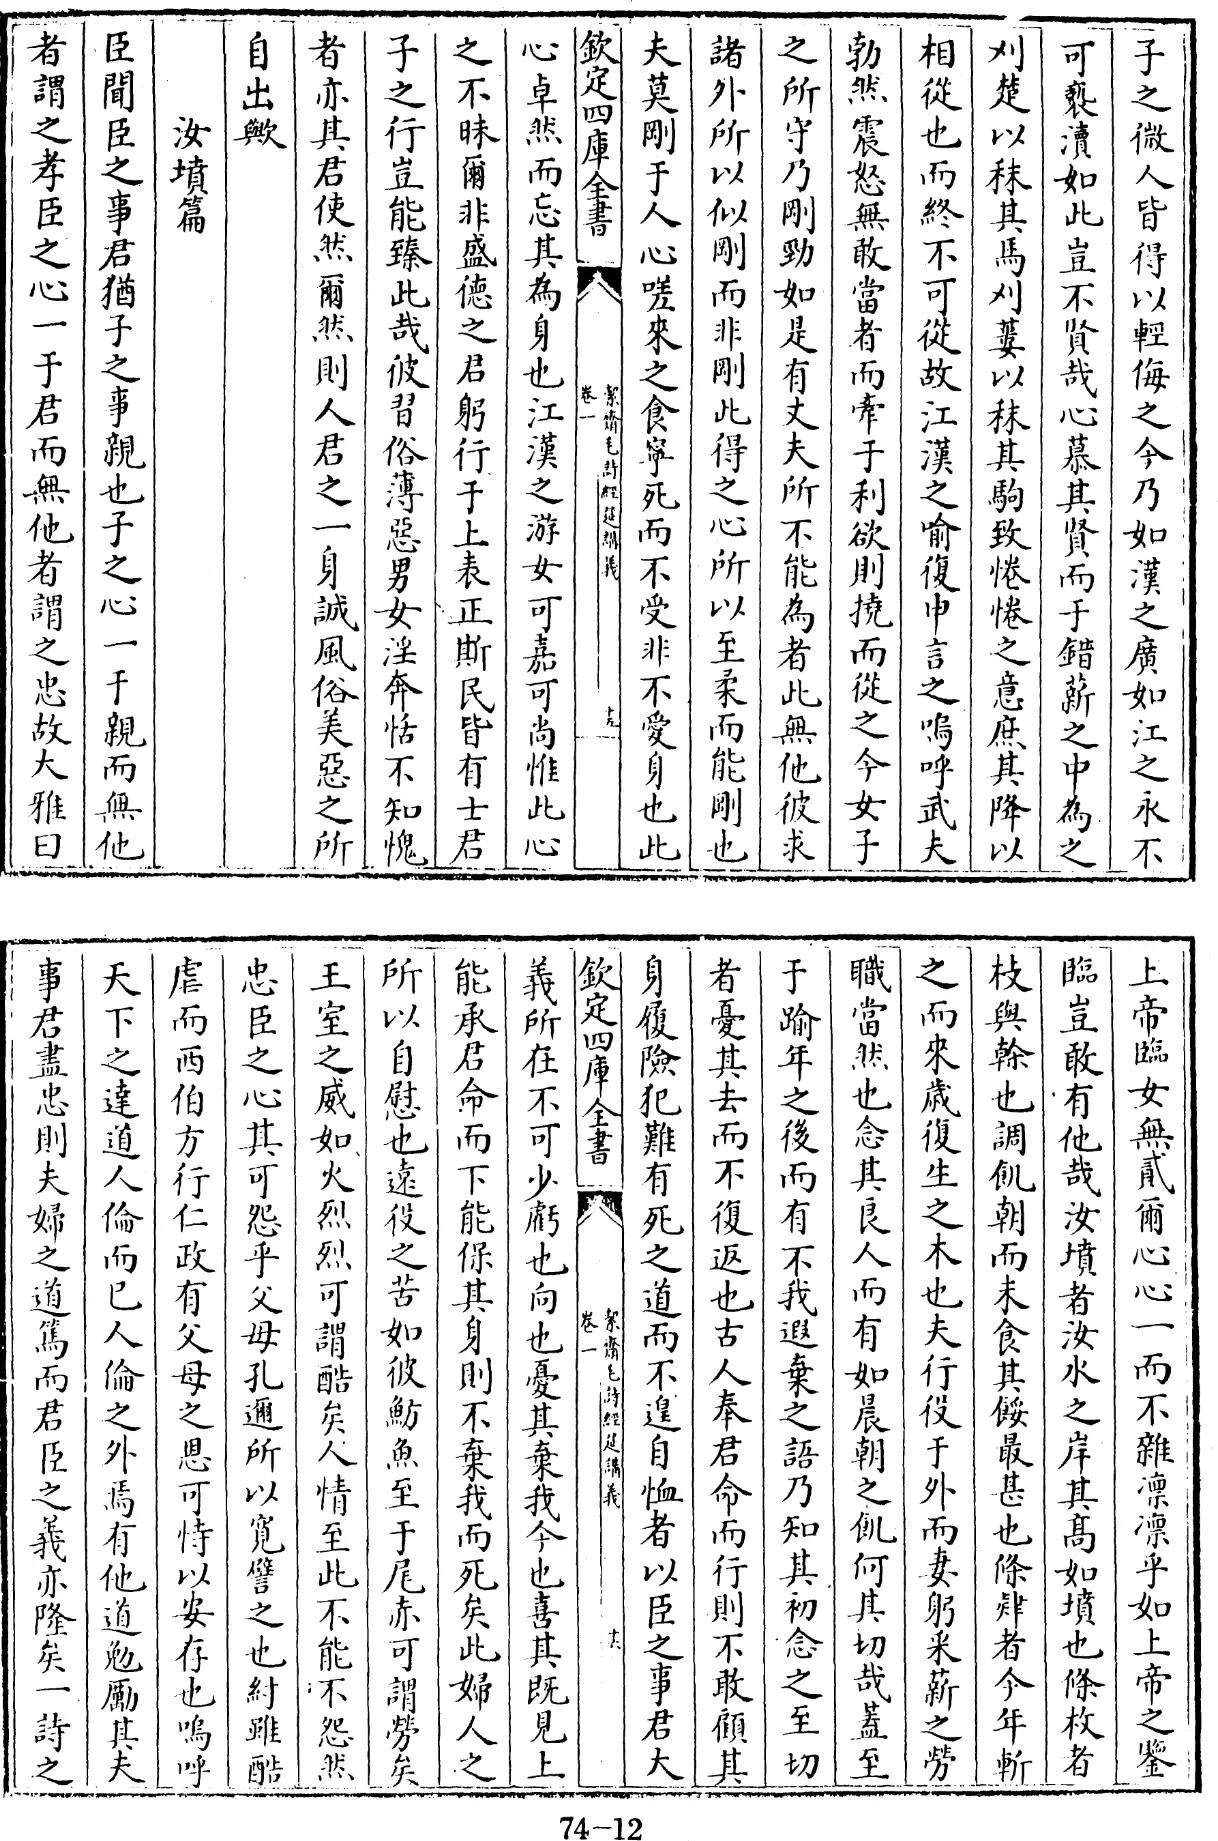 子之微人皆得以輕侮之今乃如漢之廣如江之永不
可褻瀆如此豈不賢哉心慕其賢而于錯薪之中為之
刈楚以秣其馬刈蔞以秣其駒致惓惓之意庶其降以
相從也而終不可從故江漢之喻復申言之嗚呼武夫
勃然震怒無敢當者而牽于利欲則撓而從之今女子
之所守乃剛勁如是有丈夫所不能為者此無他彼求
諸外所以似剛而非剛此得之心所以至柔而能剛也
夫莫剛于人心嗟來之食寧死而不受非不愛身也此
欽定四庫全書
絜齋毛詩經筵講義
卷一
十五
心卓然而忘其為身也江漢之游女可嘉可尚惟此心
之不昧爾非盛德之君躬行于上表正斯民皆有士君
子之行豈能臻此哉彼習俗薄惡男女淫奔恬不知愧
者亦其君使然爾然則人君之一身誠風俗美惡之所
自出歟
汝墳篇
臣聞臣之事君猶子之事親也子之心一于親而無他
者謂之孝臣之心一于君而無他者謂之忠故大雅曰
上帝臨女無貳爾心心一而不雜凛凛乎如上帝之鑒
臨豈敢有他哉汝墳者汝水之岸其髙如墳也條枚者
枝與榦也調飢朝而未食其餒最甚也條肄者今年斬
之而來歲復生之木也夫行役于外而妻躬采薪之勞
職當然也念其良人而有如晨朝之飢何其切哉蓋至
于踰年之後而有不我遐棄之語乃知其初念之至切
者憂其去而不復返也古人奉君命而行則不敢顧其
身履險犯難有死之道而不遑自恤者以臣之事君大
欽定四庫全書
絜齋毛詩經筵講義
卷一
十六
義所在不可少虧也向也憂其棄我今也喜其既見上
能承君命而下能保其身則不棄我而死矣此婦人之
所以自慰也遠役之苦如彼魴魚至于尾赤可謂勞矣
王室之威如火烈烈可謂酷矣人情至此不能不怨然
忠臣之心其可怨乎父母孔邇所以寛譬之也紂雖酷
虐而西伯方行仁政有父母之恩可恃以安存也嗚呼
天下之達道人倫而已人倫之外焉有他道勉勵其夫
事君盡忠則夫婦之道篤而君臣之義亦隆矣一詩之
74-12